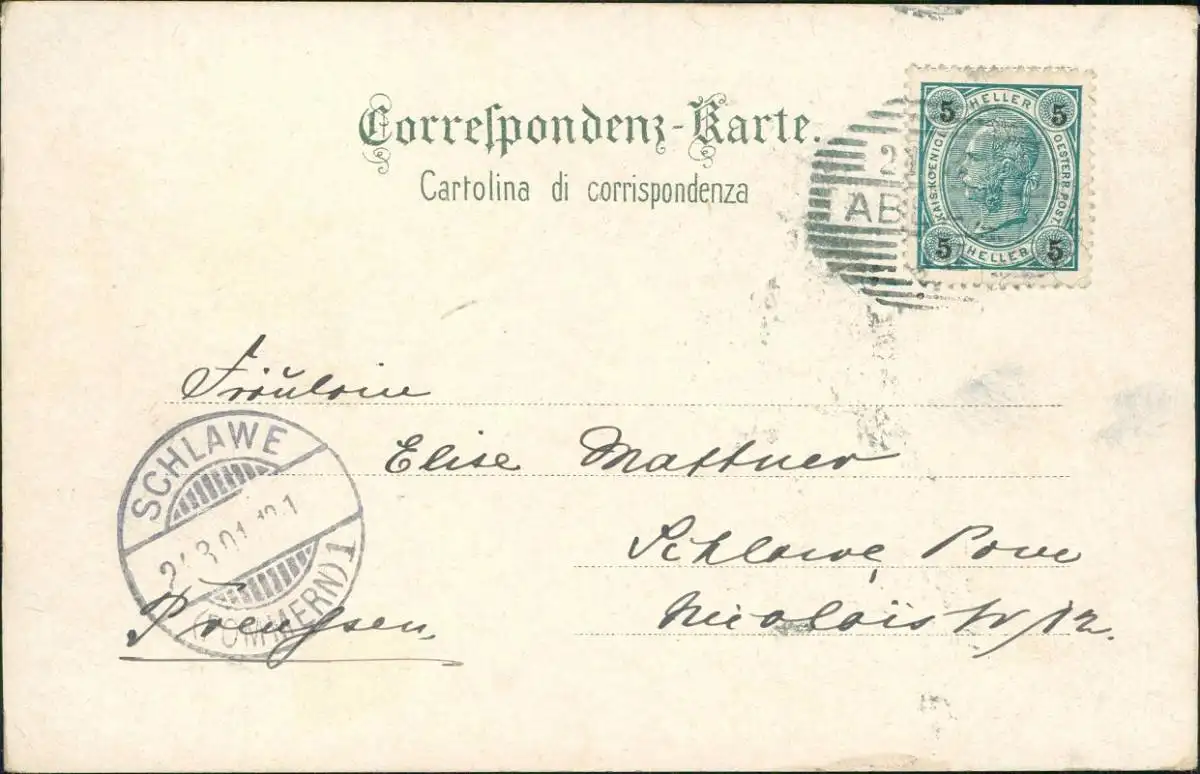 Correspondenz-Karte.
Cartolina di corrispondenza
5 HELLER 5
KAIS. KOENIGL. OESTERR. POST.
5 HELLER 5
Fräulein
Elise Mattner
Schlawe, Pom
Nicolaistr/12.
Preußen,
SCHLAWE
(POMMERN) 1